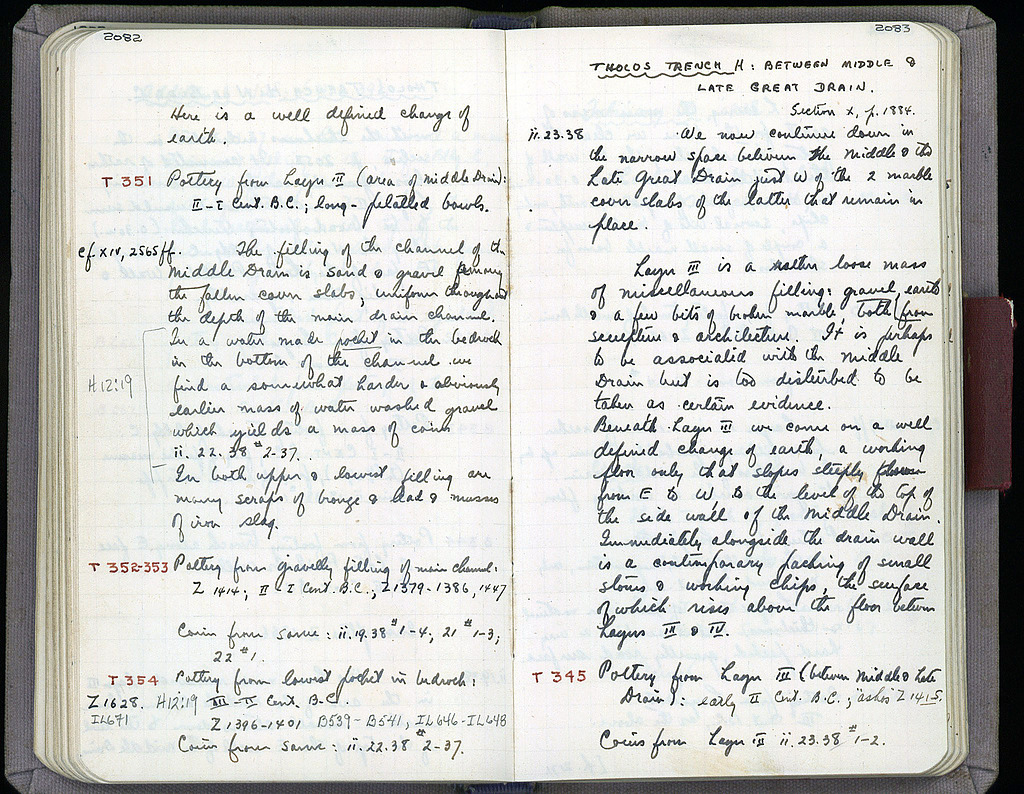 2082
Here is a well defined change of
earth.
T 351 Pottery from Layer III (area of Middle Drain):
II-I Cent. B.C.; long-petalled bowls.
cf. XIV, 2565 ff. The filling of the channel of the
Middle Drain is sand & gravel among
the fallen cover slabs, uniform throughout
the depth of the main drain channel.
In a water made pocket in the bedrock
in the bottom of the channel we
H 12:19 find a somewhat harder & obviously
earlier mass of water washed gravel
which yields a mass of coins
ii. 22. 38 #2-37.
In both upper & lowest filling are
many scraps of bronze & lead & masses
of iron slag.
T 352-353 Pottery from gravelly filling of main channel:
Z 1414; II-I Cent. B.C., Z1379-1386, 1447
Coins from same: ii.19.38 #1-4; 21 #1-3;
22 #1.
T 354 Pottery from lowest pocket in bedrock:
Z 1628. H12:19 III-II Cent. B.C.
IL671 Z 1396-1401 B539-B541, IL646-IL648
Coins from same: ii.22.38 #2-37.
2083
THOLOS TRENCH H: BETWEEN MIDDLE &
LATE GREAT DRAIN.
Section X, p. 1884.
ii. 23.38 We now continue down in
the narrow space between the Middle & the
Late Great Drain just W of the 2 marble
cover slabs of the latter that remain in
place.
Layer III is a rather loose mass
of miscellaneous filling: gravel, earth
& a few bits of broken marble both from
sculpture & architecture. It is perhaps
to be associated with the Middle
Drain but is too disturbed to be
taken as certain evidence.
Beneath Layer III we come on a well
defined change of earth, a working
floor only that slopes steeply down
from E to W, to the level of the top of
the side wall of the Middle Drain.
Immediately alongside the drain wall
is a contemporary packing of small
stones & working chips, the surface
of which rises above the floor between
Layers III & IV.
T 345 Pottery from Layer III (between Middle & Late
Drain): early II Cent. B.C.; "ashos" Z 1415.
Coins from Layer III ii.23.38 #1-2.